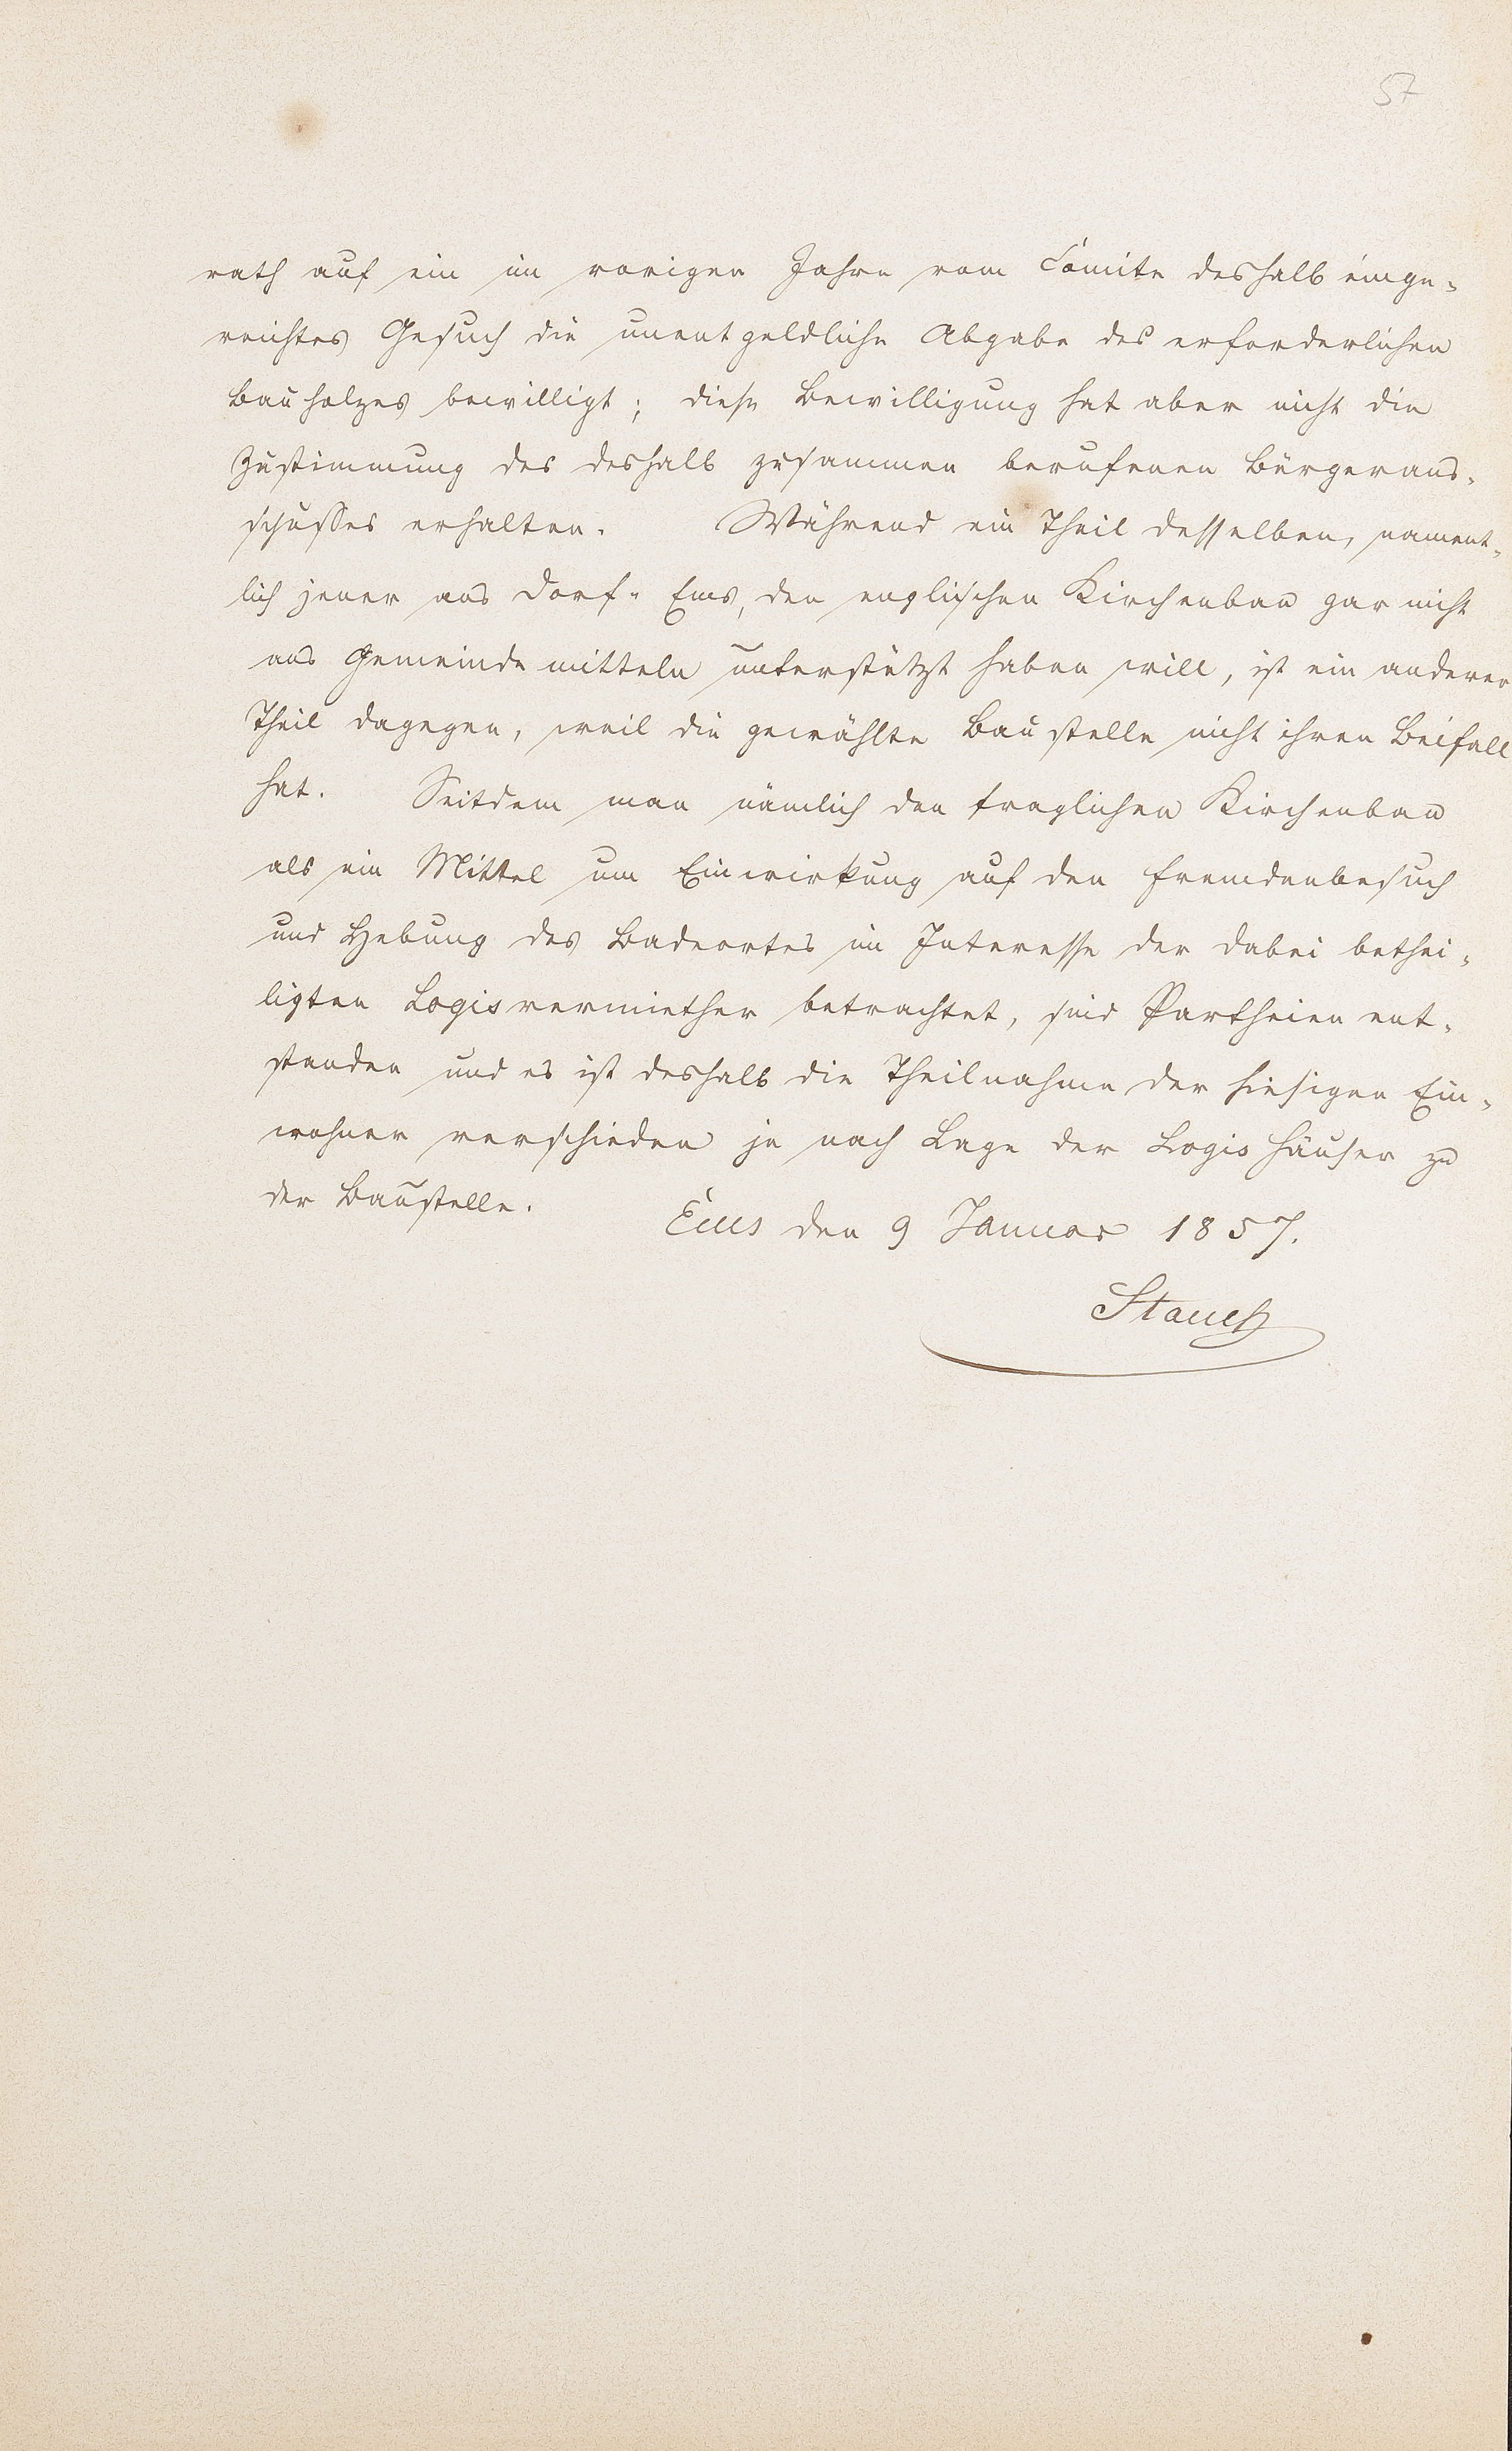 57
rath auf ein im vorigen Jahre vom Comite deshalb einge-
reichtes Gesuch die unentgeldliche Abgabe des erforderlichen
Bauholzes bewilligt; diese Bewilligung hat aber nicht die
Zustimmung des deshalb zusammen berufenen Bürgeraus-
schusses erhalten. Während ein Theil desselben, nament-
lich jener aus Dorf-Ems, den englischen Kirchenbau gar nicht
aus Gemeindemitteln unterstützt haben will, ist ein anderer
Theil dagegen, weil die gewählte Baustelle nicht ihren Beifall
hat. Seitdem man nämlich den fraglichen Kirchenbau
als ein Mittel um Einwirkung auf den Fremdenbesuch
und Hebung des Badeortes im Interesse der dabei bethei-
ligten Logisvermiether betrachtet, sind Partheien ent-
standen und es ist deshalb die Theilnahme der hiesigen Ein-
wohner verschieden je nach Lage der Logishäuser zu
der Baustelle.
Ems den 9 Januar 1857.
Stauch